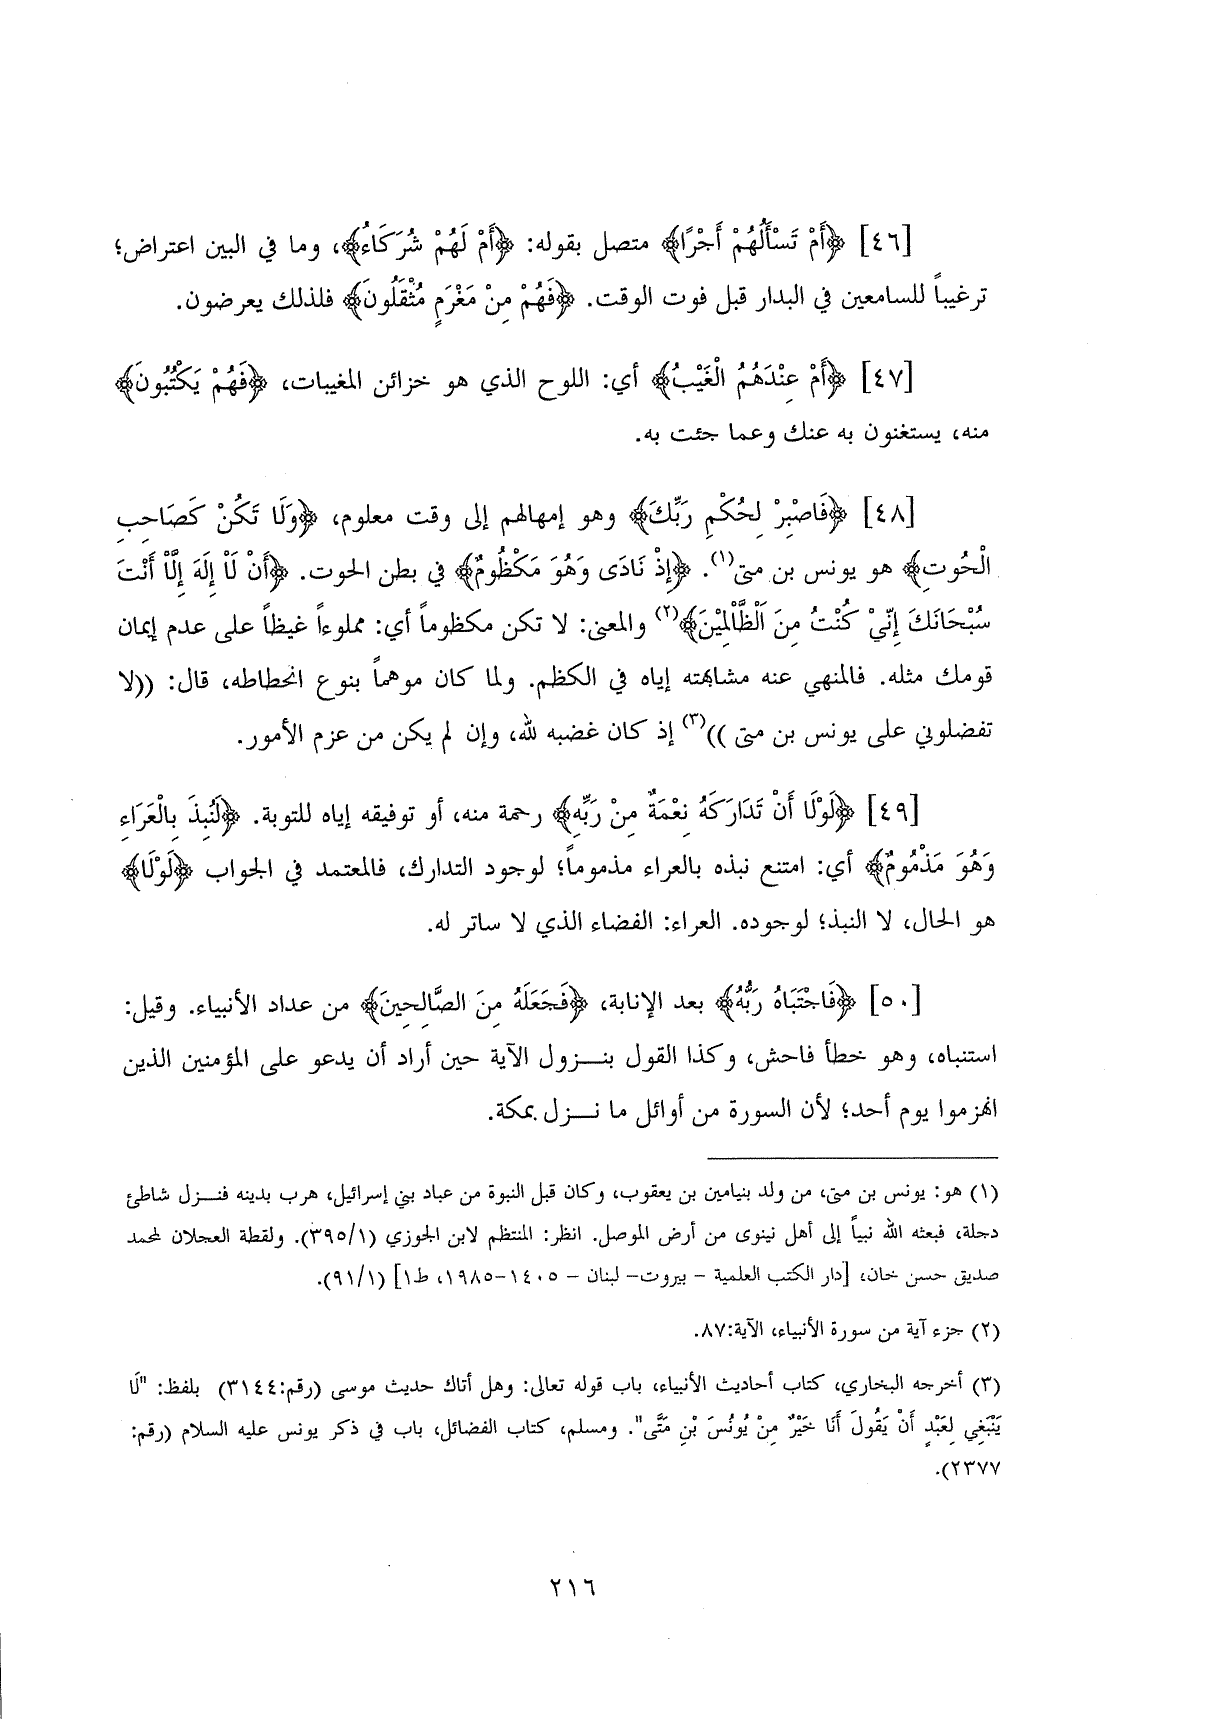 [٤٦] ﴿أَمْ تَسْأَلُهُمْ أَجْرًا﴾ متصل بقوله: ﴿أَمْ لَهُمْ شُرَكَاءُ﴾، وما في البين اعتراض؛
ترغيباً للسامعين في البدار قبل فوت الوقت. ﴿فَهُمْ مِنْ مَغْرَمٍ مُثْقَلُونَ﴾ فلذلك يعرضون.
[٤٧] ﴿أَمْ عِنْدَهُمُ الْغَيْبُ﴾ أي: اللوح الذي هو خزائن المغيبات، ﴿فَهُمْ يَكْتُبُونَ﴾
منه، يستغنون به عنك وعما جئت به.
[٤٨] ﴿فَاصْبِرْ لِحُكْمِ رَبِّكَ﴾ وهو إمهالهم إلى وقت معلوم، ﴿وَلَا تَكُنْ كَصَاحِبِ
الْحُوتِ﴾ هو يونس بن متى(١). ﴿إِذْ نَادَى وَهُوَ مَكْظُومٌ﴾ في بطن الحوت. ﴿أَنْ لَاْ إِلَهَ إِلَّاْ أَنْتَ
سُبْحَانَكَ إِنِّيْ كُنْتُ مِنَ اَلْظَّاْلِمِيْنَ﴾(٢) والمعنى: لا تكن مكظوماً أي: مملوءاً غيظاً على عدم إيمان
قومك مثله. فالمنهي عنه مشابهته إياه في الكظم. ولما كان موهماً بنوع انحطاطه، قال: ((لا
تفضلوني على يونس بن متى ))(٣) إذ كان غضبه لله، وإن لم يكن من عزم الأمور.
[٤٩] ﴿لَوْلَا أَنْ تَدَارَكَهُ نِعْمَةٌ مِنْ رَبِّهِ﴾ رحمة منه، أو توفيقه إياه للتوبة. ﴿لَنُبِذَ بِالْعَرَاءِ
وَهُوَ مَذْمُومٌ﴾ أي: امتنع نبذه بالعراء مذموماً؛ لوجود التدارك، فالمعتمد في الجواب ﴿لَوْلَا﴾
هو الحال، لا النبذ؛ لوجوده. العراء: الفضاء الذي لا ساتر له.
[٥٠] ﴿فَاجْتَبَاهُ رَبُّهُ﴾ بعد الإنابة، ﴿فَجَعَلَهُ مِنَ الصَّالِحِينَ﴾ من عداد الأنبياء. وقيل:
استنباه، وهو خطأ فاحش، وكذا القول بنـزول الآية حين أراد أن يدعو على المؤمنين الذين
انهزموا يوم أحد؛ لأن السورة من أوائل ما نـزل بمكة.
(١) هو: يونس بن متى، من ولد بنيامين بن يعقوب، وكان قبل النبوة من عباد بني إسرائيل، هرب بدينه فنـزل شاطئ
دجلة، فبعثه الله نبياً إلى أهل نينوى من أرض الموصل. انظر: المنتظم لابن الجوزي (٣٩٥/١). ولقطة العجلان لمحمد
صديق حسن خان، [دار الكتب العلمية – بيروت– لبنان – ١٤٠٥–١٩٨٥، ط١] (٩١/١).
(٢) جزء آية من سورة الأنبياء، الآية:٨٧.
(٣) أخرجه البخاري، كتاب أحاديث الأنبياء، باب قوله تعالى: وهل أتاك حديث موسى (رقم:٣١٤٤) بلفظ: "لَا
يَنْبَغِي لِعَبْدٍ أَنْ يَقُولَ أَنَا خَيْرٌ مِنْ يُونُسَ بْنِ مَتَّى". ومسلم، كتاب الفضائل، باب في ذكر يونس عليه السلام (رقم:
٢٣٧٧).
٢١٦